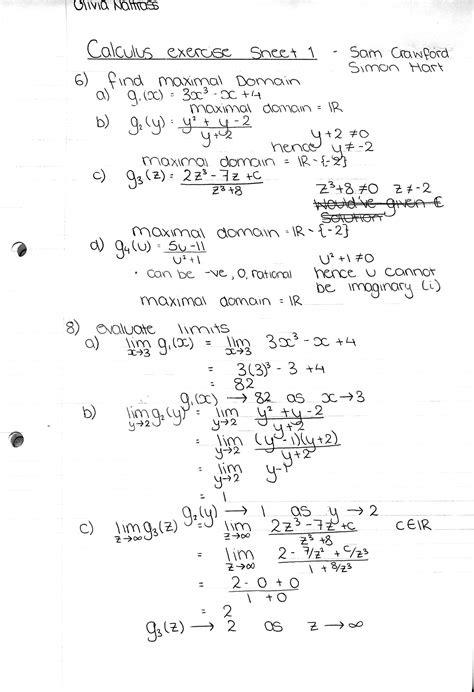 Olivia Nattrass
Calculus exercise sheet 1 - Sam Crawford
Simon Hart
6) find maximal Domain
a) g₁(x) = 3x³ - x + 4
maximal domain = IR
b) g₂(y) = y² + y - 2 / y + 2
y + 2 ≠ 0
hence y ≠ -2
maximal domain = IR ∖ {-2}
c) g₃(z) = 2z³ - 7z + c / z³ + 8
z³ + 8 ≠ 0 z ≠ -2
Would've given C
Solution
maximal domain = IR ∖ {-2}
d) g₄(u) = 5u - 11 / u² + 1
u² + 1 ≠ 0
· can be -ve, 0, rational hence u cannot
be imaginary (i)
maximal domain = IR
8) evaluate limits
a) lim x→3 g₁(x) = lim x→3 3x³ - x + 4
= 3(3)³ - 3 + 4
= 82
g₁(x) → 82 as x → 3
b) lim y→2 g₂(y) = lim y→2 y² + y - 2 / y + 2
= lim y→2 (y - 1)(y + 2) / y + 2
= lim y→2 y - 1
= 1
g₂(y) → 1 as y → 2
c) lim z→∞ g₃(z) = lim z→∞ 2z³ - 7z + c / z³ + 8 c∈IR
= lim z→∞ 2 - 7/z² + c/z³ / 1 + 8/z³
= 2 - 0 + 0 / 1 + 0
= 2
g₃(z) → 2 as z → ∞